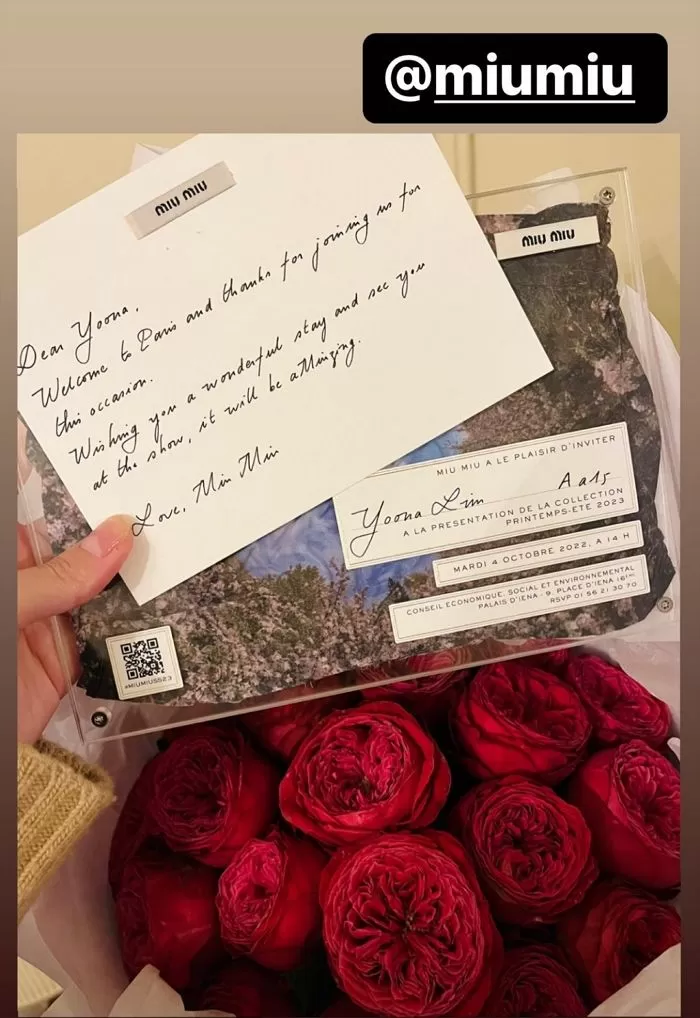 @miumiu
MIU MIU
Dear Yoona,
Welcome to Paris and thanks for joining us for
this occasion.
Wishing you a wonderful stay and see you
at the show, it will be aMiuzing.
Love, Miu Miu
MIU MIU
MIU MIU A LE PLAISIR D'INVITER
Yoona Lim A a15
A LA PRESENTATION DE LA COLLECTION
PRINTEMPS-ETE 2023
MARDI 4 OCTOBRE 2022, A 14 H
CONSEIL ECONOMIQUE, SOCIAL ET ENVIRONNEMENTAL
PALAIS D'IENA - 9, PLACE D'IENA 16EME
RSVP 01 56 21 30 70
#MIUMIUSS23